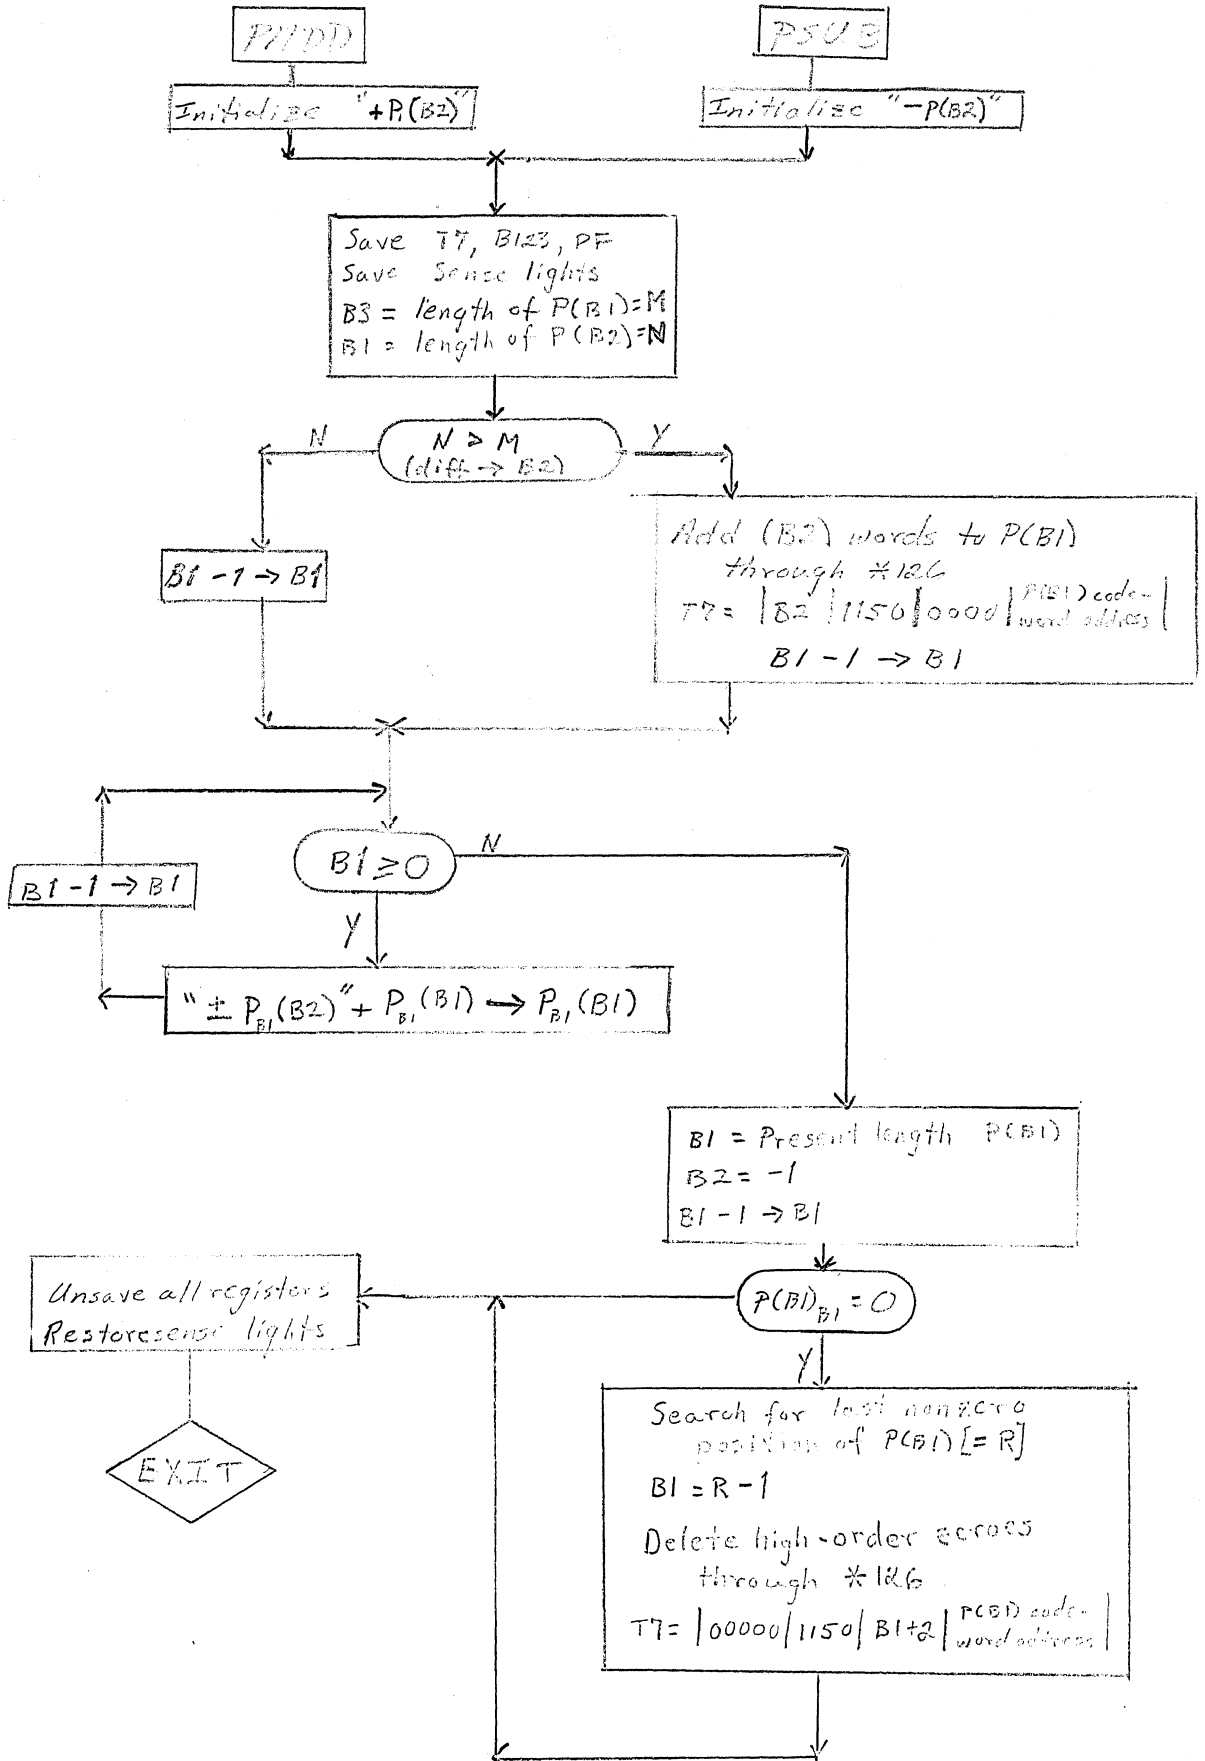 PADD
PSUB
Initialize "+P(B2)"
Initialize "-P(B2)"
Save T7, B123, PF
Save Sense lights
B3 = length of P(B1)=M
B1 = length of P(B2)=N
N > M
(diff → B2)
N
Y
B1 - 1 → B1
Add (B2) words to P(B1)
through *126
T7 = |B2|1150|0000|P(B1) code-
word address|
B1 - 1 → B1
B1 ≥ 0
N
Y
B1 - 1 → B1
"± P_B1(B2)" + P_B1(B1) → P_B1(B1)
B1 = Present length P(B1)
B2 = -1
B1 - 1 → B1
P(B1)_B1 = 0
Y
Unsave all registers
Restore sense lights
EXIT
Search for last nonzero
position of P(B1) [= R]
B1 = R - 1
Delete high-order zeroes
through *126
T7 = |00000|1150|B1+2|P(B1) code-
word address|